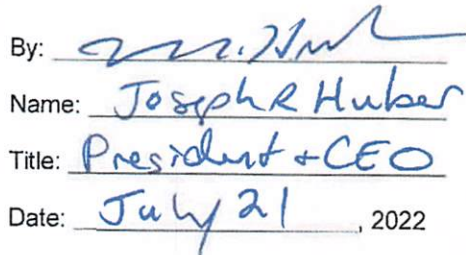 By:
Name: Joseph R Huber
Title: President + CEO
Date: July 21, 2022